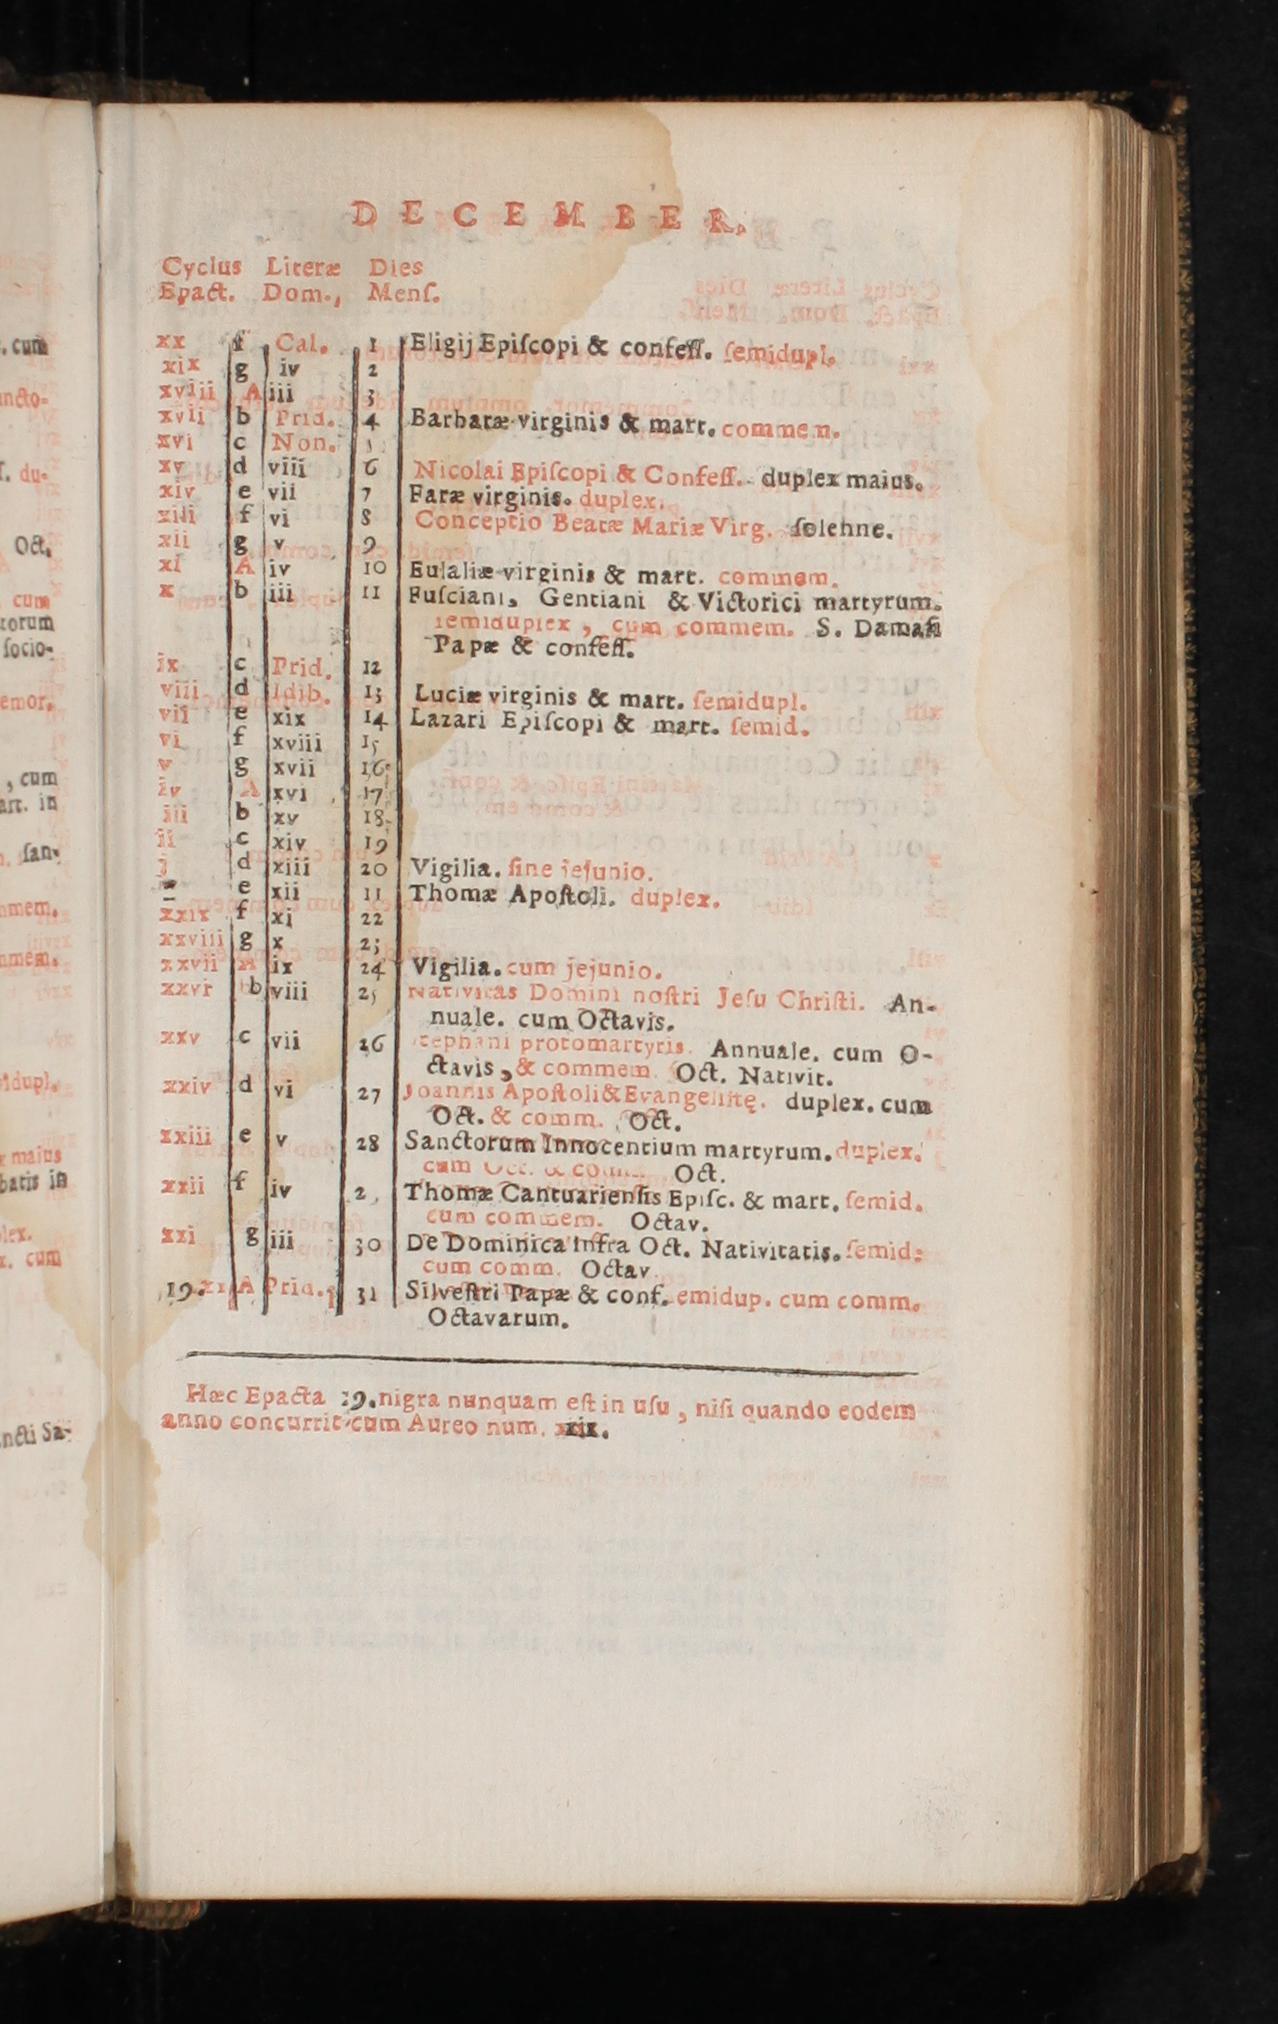 DECEMBER.
Cyclus Literæ Dies
Epact. Dom., Menſ.
xx f Cal. 1 Eligij Epiſcopi & confeſſ. ſemidupl.
xix g iv 2
xviii A iii 3
xvii b Prid. 4 Barbaræ virginis & mart. commem.
xvi c Non.
xv d viii 6 Nicolai Epiſcopi & Confeſſ. duplex maius.
xiv e vii 7 Faræ virginis. duplex.
xiii f vi 8 Conceptio Beatæ Mariæ Virg. ſolehne.
xii g v 9
xi A iv 10 Eulaliæ virginis & mart. commem.
x b iii 11 Fuſciani, Gentiani & Victorici martyrum.
ſemiduplex, cum commem. S. Damaſi
Papæ & confeſſ.
ix c Prid. 12
viii d Idib. 13 Luciæ virginis & mart. ſemidupl.
vii e xix 14 Lazari Epiſcopi & mart. ſemid.
vi f xviii 15
v g xvii 16
iv A xvi 17
iii b xv 18
ii c xiv 19
j d xiii 20 Vigilia. ſine jejunio.
e xii 11 Thomæ Apoſtoli. duplex.
xxix f xi 22
xxviii g x 23
xxvii A ix 24 Vigilia. cum jejunio.
xxvi b viii 25 Nativitas Domini noſtri Jeſu Chriſti. An-
nuale. cum Octavis.
xxv c vii 26 tephani protomartyris. Annuale. cum O-
ctavis, & commem. Oct. Nativit.
xxiv d vi 27 Joannis Apoſtoli & Evangeliſtę. duplex. cum
Oct. & comm. Oct.
xxiii e v 28 Sanctorum Innocentium martyrum. duplex.
cum Oct. & comm. Oct.
xxii f iv 2 Thomæ Cantuarienſis Epiſc. & mart. ſemid.
cum commem. Octav.
xxi g iii 30 De Dominica infra Oct. Nativitatis. ſemid.
cum comm. Octav
19. xx A Prid. 31 Silveſtri Papæ & conf. emidup. cum comm.
Octavarum.
Hæc Epacta 19. nigra nunquam eſt in uſu, niſi quando eodem
anno concurrit cum Aureo num. xix.